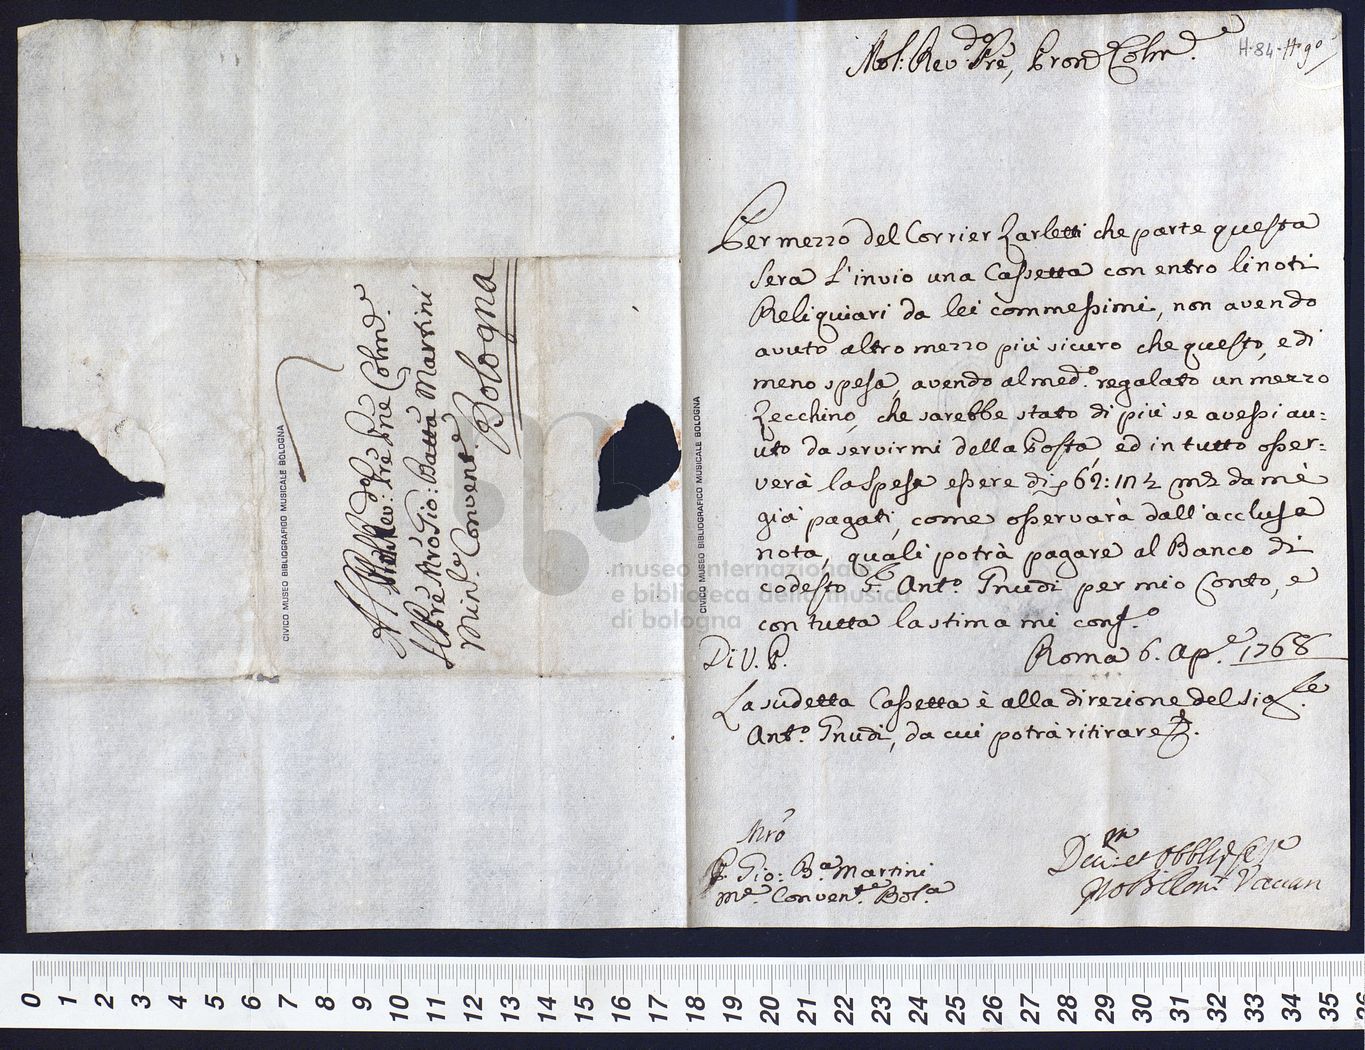 Mol: Rev:do Pre, Pron Colmo
H. 84
Per mezzo del Corrier Zarletti che parte questa
sera l'invio una Cassetta con entro li noti
Reliquiari da lei commessimi, non avendo
avuto altro mezzo più sicuro che questo, e di
meno spesa, avendo al med:o regalato un mezzo
Zecchino, che sarebbe stato di più se avessi au=
uto da servirmi della Posta, ed in tutto osser=
verà la spesa essere di 62: da mè
già pagati, come osservarà dall'acclusa
nota, quali potrà pagare al Banco di
codesto Sr Ant.o Gnudi per mio Conto, e
con tutta la stima mi conf.o
Di V. P. Roma 6. Ap.e 1768
La sudetta Cassetta è alla direzione del Sig.re
Ant.o Gnudi, da cui potrà ritirare
Mro
P. Gio: B.a Martini
Me Conven.te Bol.a
Rev: Pre Pre Colmo
Mro Gio: Batta Martini
Min.e Convent.e
Bologna
CIVICO MUSEO BIBLIOGRAFICO MUSICALE BOLOGNA
CIVICO MUSEO BIBLIOGRAFICO MUSICALE BOLOGNA
museo internazionale
e biblioteca della musica
di bologna
0 1 2 3 4 5 6 7 8 9 10 11 12 13 14 15 16 17 18 19 20 21 22 23 24 25 26 27 28 29 30 31 32 33 34 35 36